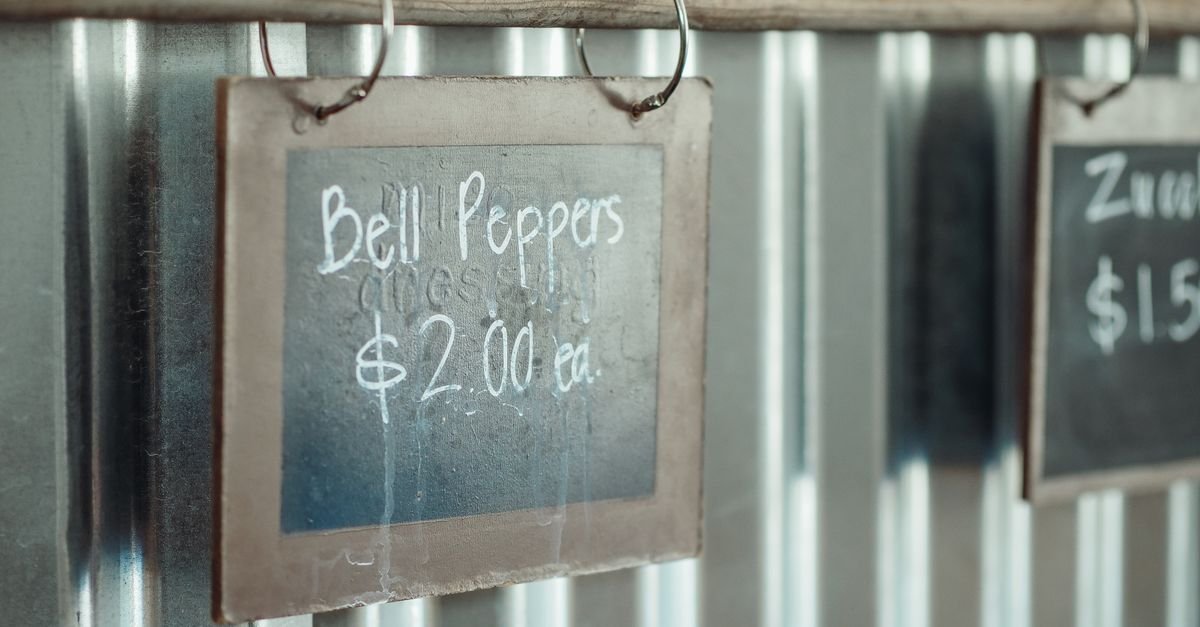 Bell Peppers
$2.00 ea.
$1.5